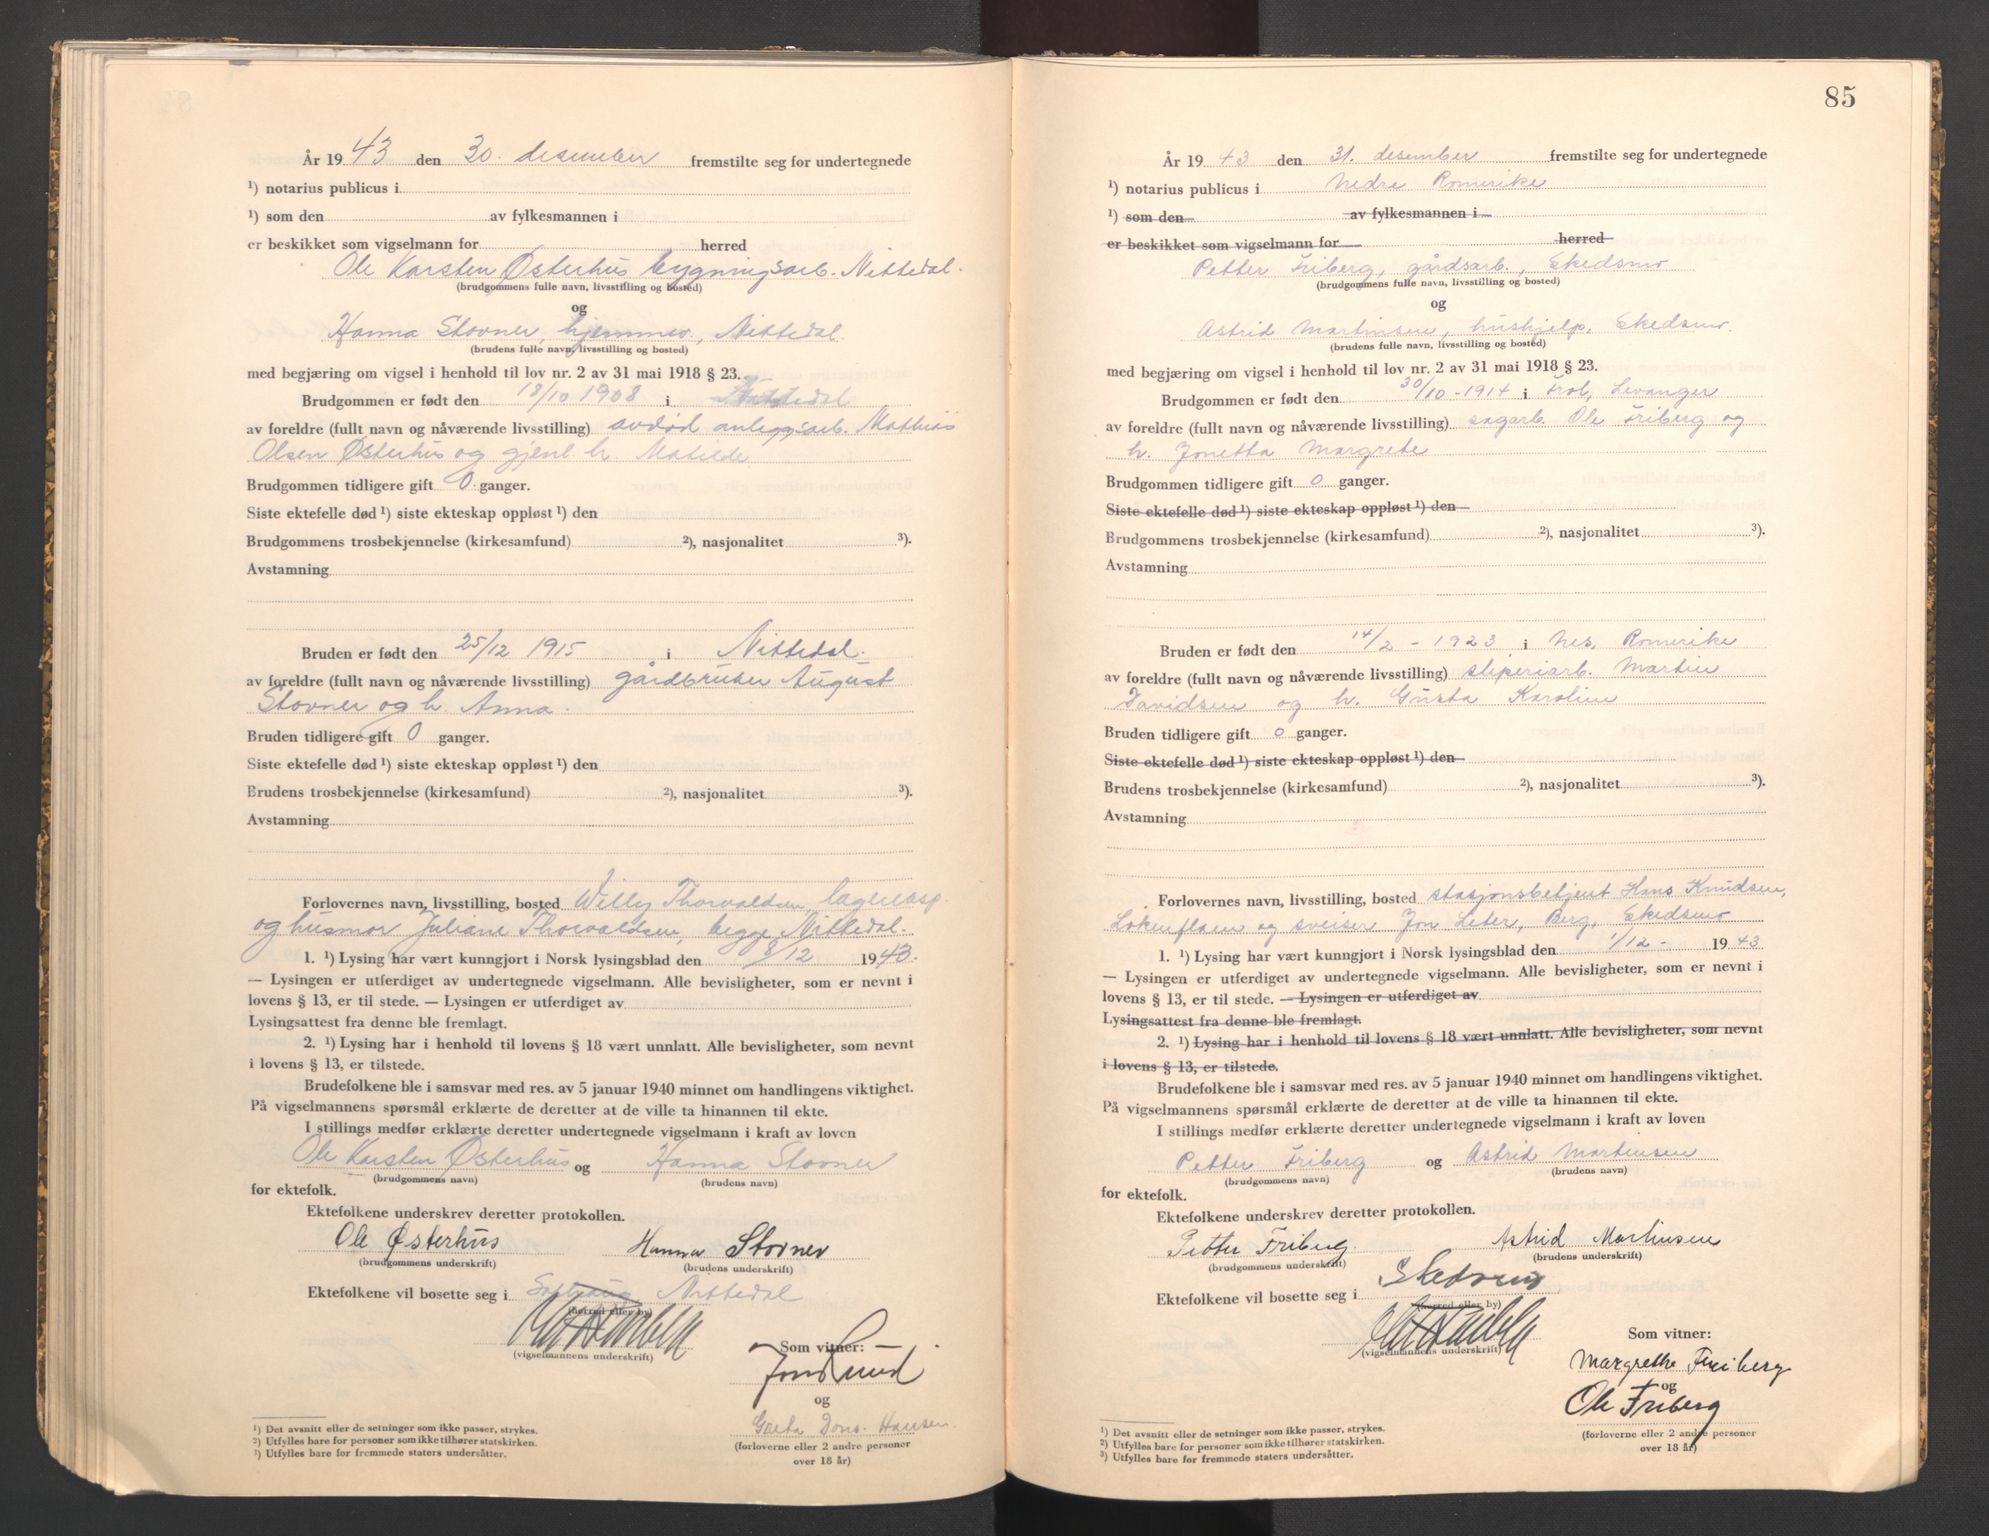 År 19 43 den 30. desember fremstilte seg for undertegnede
¹) notarius publicus i
¹) som den av fylkesmannen i
er beskikket som vigselmann for herred
Ole Karsten Østerhus bygningsarb. Nittedal.
(brudgommens fulle navn, livsstilling og bosted)
og
Hanna Stovner, hjemmev, Nittedal.
(brudens fulle navn, livsstilling og bosted)
med begjæring om vigsel i henhold til lov nr. 2 av 31 mai 1918 § 23.
Brudgommen er født den 18/10 1908 i Nittedal
av foreldre (fullt navn og nåværende livsstilling) avdød anleggsarb. Mathias
Olsen Østerhus og gjenl. h. Matilde
Brudgommen tidligere gift 0 ganger.
Siste ektefelle død ¹) siste ekteskap oppløst ¹) den
Brudgommens trosbekjennelse (kirkesamfund) ²), nasjonalitet ³).
Avstamning
Bruden er født den 25/12 1915 i Nittedal.
av foreldre (fullt navn og nåværende livsstilling) gårdbruker August
Stovner og h. Anna.
Bruden tidligere gift 0 ganger.
Siste ektefelle død ¹) siste ekteskap oppløst ¹) den
Brudens trosbekjennelse (kirkesamfund) ²), nasjonalitet ³).
Avstamning
Forlovernes navn, livsstilling, bosted Willy Thorvaldsen, lagereksp.
og husmor Juliane Thorvaldsen, begge Nittedal.
1. ¹) Lysing har vært kunngjort i Norsk lysingsblad den 8/12 1943.
— Lysingen er utferdiget av undertegnede vigselmann. Alle bevisligheter, som er nevnt i
lovens § 13, er til stede. — Lysingen er utferdiget av
Lysingsattest fra denne ble fremlagt.
2. ¹) Lysing har i henhold til lovens § 18 vært unnlatt. Alle bevisligheter, som nevnt
i lovens § 13, er tilstede.
Brudefolkene ble i samsvar med res. av 5 januar 1940 minnet om handlingens viktighet.
På vigselmannens spørsmål erklærte de deretter at de ville ta hinannen til ekte.
I stillings medfør erklærte deretter undertegnede vigselmann i kraft av loven
Ole Karsten Østerhus og Hanna Stovner
(brudgommens navn) (brudens navn)
for ektefolk.
Ektefolkene underskrev deretter protokollen.
Ole Østerhus Hanna Stovner
(brudgommens underskrift) (brudens underskrift)
Ektefolkene vil bosette seg i Nittedal
(herred eller by)
(vigselmannens underskrift)
Som vitner:
og
Greta Dons-Hansen.
(forloverne eller 2 andre personer
over 18 år)
¹) Det avsnitt eller de setninger som ikke passer, strykes.
²) Utfylles bare for personer som ikke tilhører statskirken.
³) Utfylles bare for fremmede staters undersåtter.
85
År 19 43 den 31. desember fremstilte seg for undertegnede
¹) notarius publicus i Nedre Romerike
¹) som den av fylkesmannen i
er beskikket som vigselmann for herred
Petter Friberg, gårdsarb., Skedsmo
(brudgommens fulle navn, livsstilling og bosted)
og
Astrid Martinsen, hushjelp, Skedsmo.
(brudens fulle navn, livsstilling og bosted)
med begjæring om vigsel i henhold til lov nr. 2 av 31 mai 1918 § 23.
Brudgommen er født den 30/10-1914 i Frol, Levanger
av foreldre (fullt navn og nåværende livsstilling) sagarb. Ole Friberg og
h. Jonetta Margrete
Brudgommen tidligere gift 0 ganger.
Siste ektefelle død ¹) siste ekteskap oppløst ¹) den
Brudgommens trosbekjennelse (kirkesamfund) ²), nasjonalitet ³).
Avstamning
Bruden er født den 14/2 - 1923 i Nes, Romerike
av foreldre (fullt navn og nåværende livsstilling) sliperiarb. Martin
Davidsen og h. Gusta Karoline
Bruden tidligere gift 0 ganger.
Siste ektefelle død ¹) siste ekteskap oppløst ¹) den
Brudens trosbekjennelse (kirkesamfund) ²), nasjonalitet ³).
Avstamning
Forlovernes navn, livsstilling, bosted stasjonsbetjent Hans Knudsen,
Løkenflaen og sveiser Jon Leter, Berg, Skedsmo
1. ¹) Lysing har vært kunngjort i Norsk lysingsblad den 1/12 - 1943
— Lysingen er utferdiget av undertegnede vigselmann. Alle bevisligheter, som er nevnt i
lovens § 13, er til stede. — Lysingen er utferdiget av
Lysingsattest fra denne ble fremlagt.
2. ¹) Lysing har i henhold til lovens § 18 vært unnlatt. Alle bevisligheter, som nevnt
i lovens § 13, er tilstede.
Brudefolkene ble i samsvar med res. av 5 januar 1940 minnet om handlingens viktighet.
På vigselmannens spørsmål erklærte de deretter at de ville ta hinannen til ekte.
I stillings medfør erklærte deretter undertegnede vigselmann i kraft av loven
Petter Friberg og Astrid Martinsen
(brudgommens navn) (brudens navn)
for ektefolk.
Ektefolkene underskrev deretter protokollen.
Petter Friberg Astrid Martinsen
(brudgommens underskrift) (brudens underskrift)
Ektefolkene vil bosette seg i Skedsmo
(herred eller by)
(vigselmannens underskrift)
Som vitner:
Margrethe Friberg
og
Ole Friberg
(forloverne eller 2 andre personer
over 18 år)
¹) Det avsnitt eller de setninger som ikke passer, strykes.
²) Utfylles bare for personer som ikke tilhører statskirken.
³) Utfylles bare for fremmede staters undersåtter.